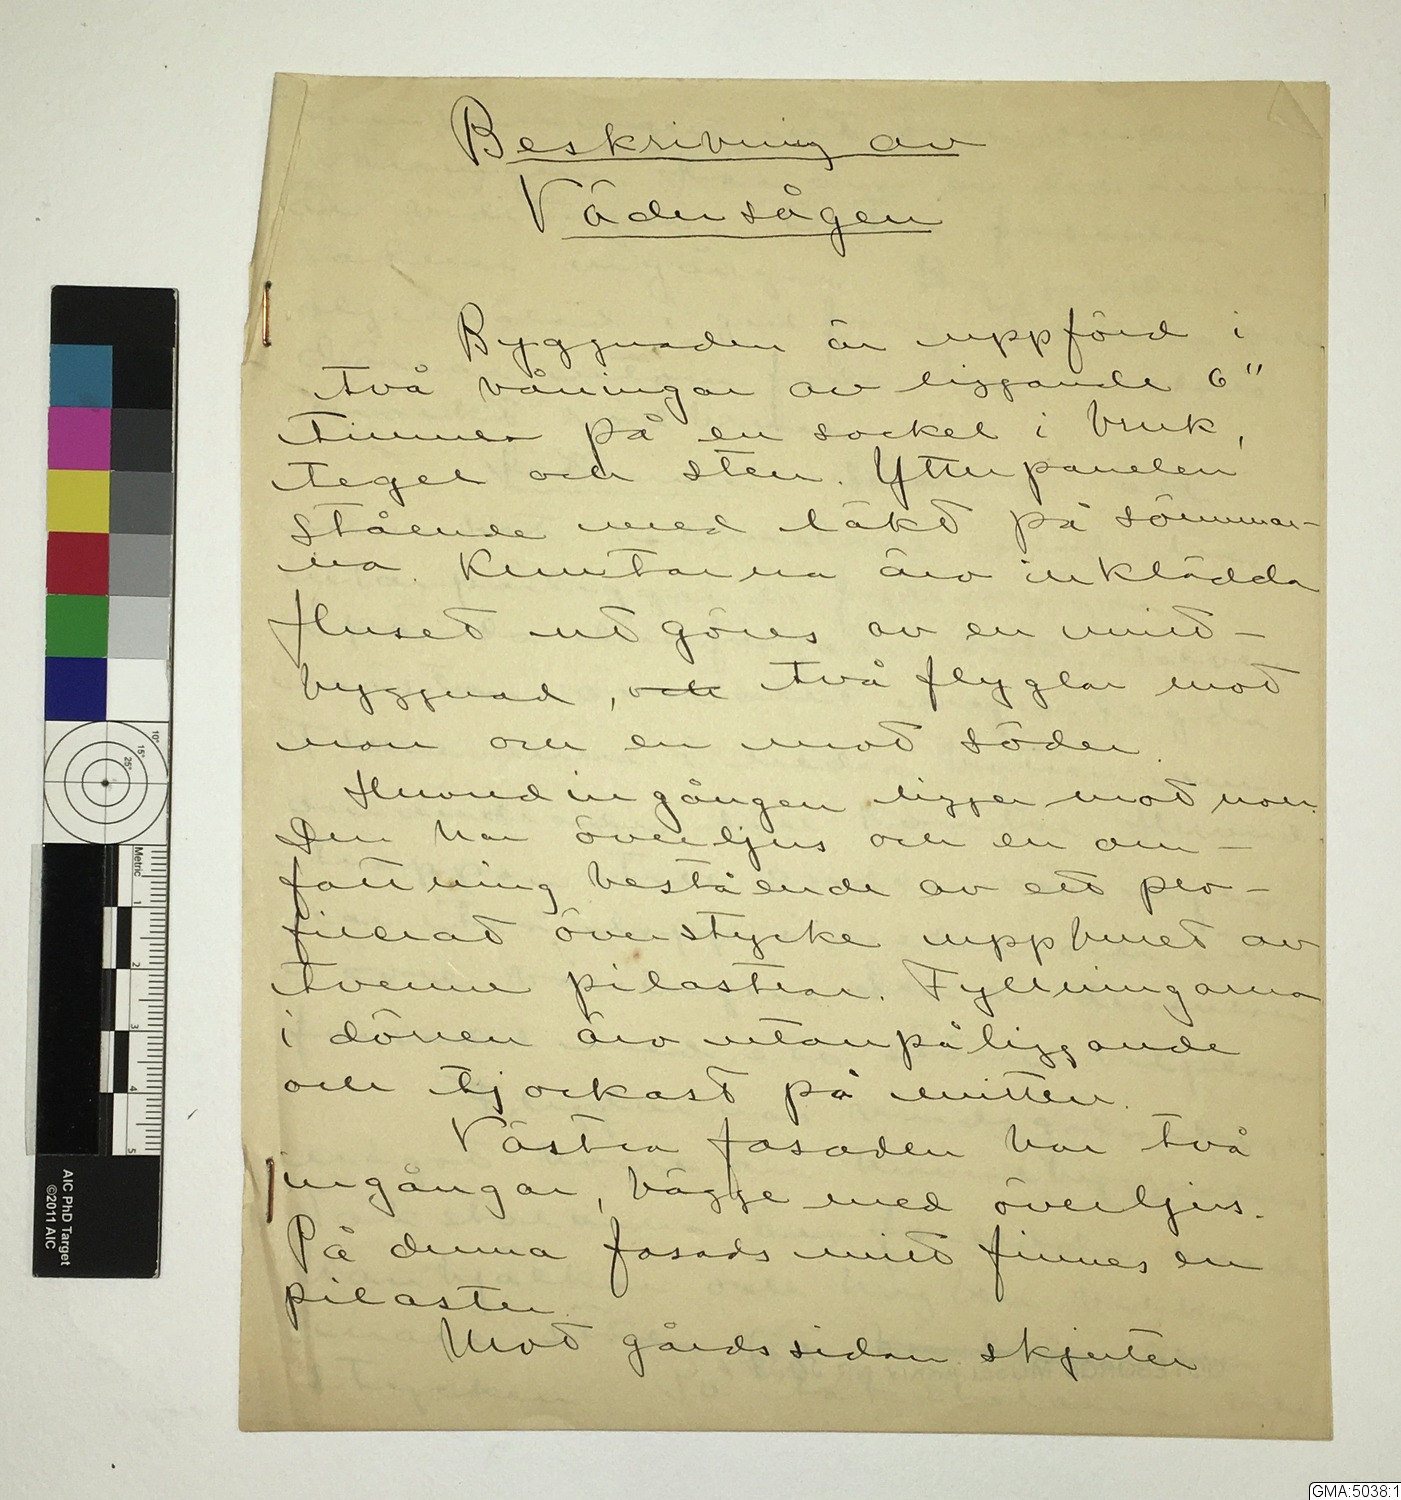 Beskrivning av
Vädersågen
Byggnaden är uppförd i
två våningar av liggande 6"
timmer på en sockel i bruk,
tegel och sten. Ytterpanelen
stående med läkt på sömmar-
na. Knutarna äro inklädda
Huset utgöres av en mitt-
byggnad, och två flyglar mot
norr och en mot söder.
Huvudingången ligger mot norr.
Den har överljus och en om-
fattning bestående av ett pro-
filerat överstycke uppburet av
tvenne pilastrar. Fyllningarna
i dörren äro utanpåliggande
och tjockast på mitten.
Västra fasaden har två
ingångar, bägge med överljus.
På denna fasads mitt finnes en
pilaster.
Mot gårdssidan skjuter
AIC PhD Target
©2011 AIC
Metric
1
2
3
4
5
10°
15°
25°
GMA:5038:1